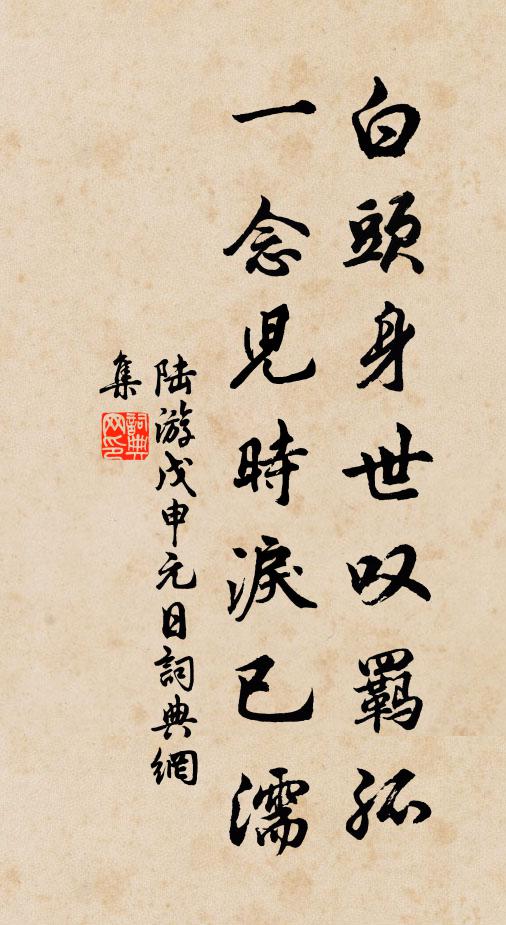 白頭身世叹羈孤
一念兒時淚已濡
陆游戊申元日詞典網
集
詞典
网印